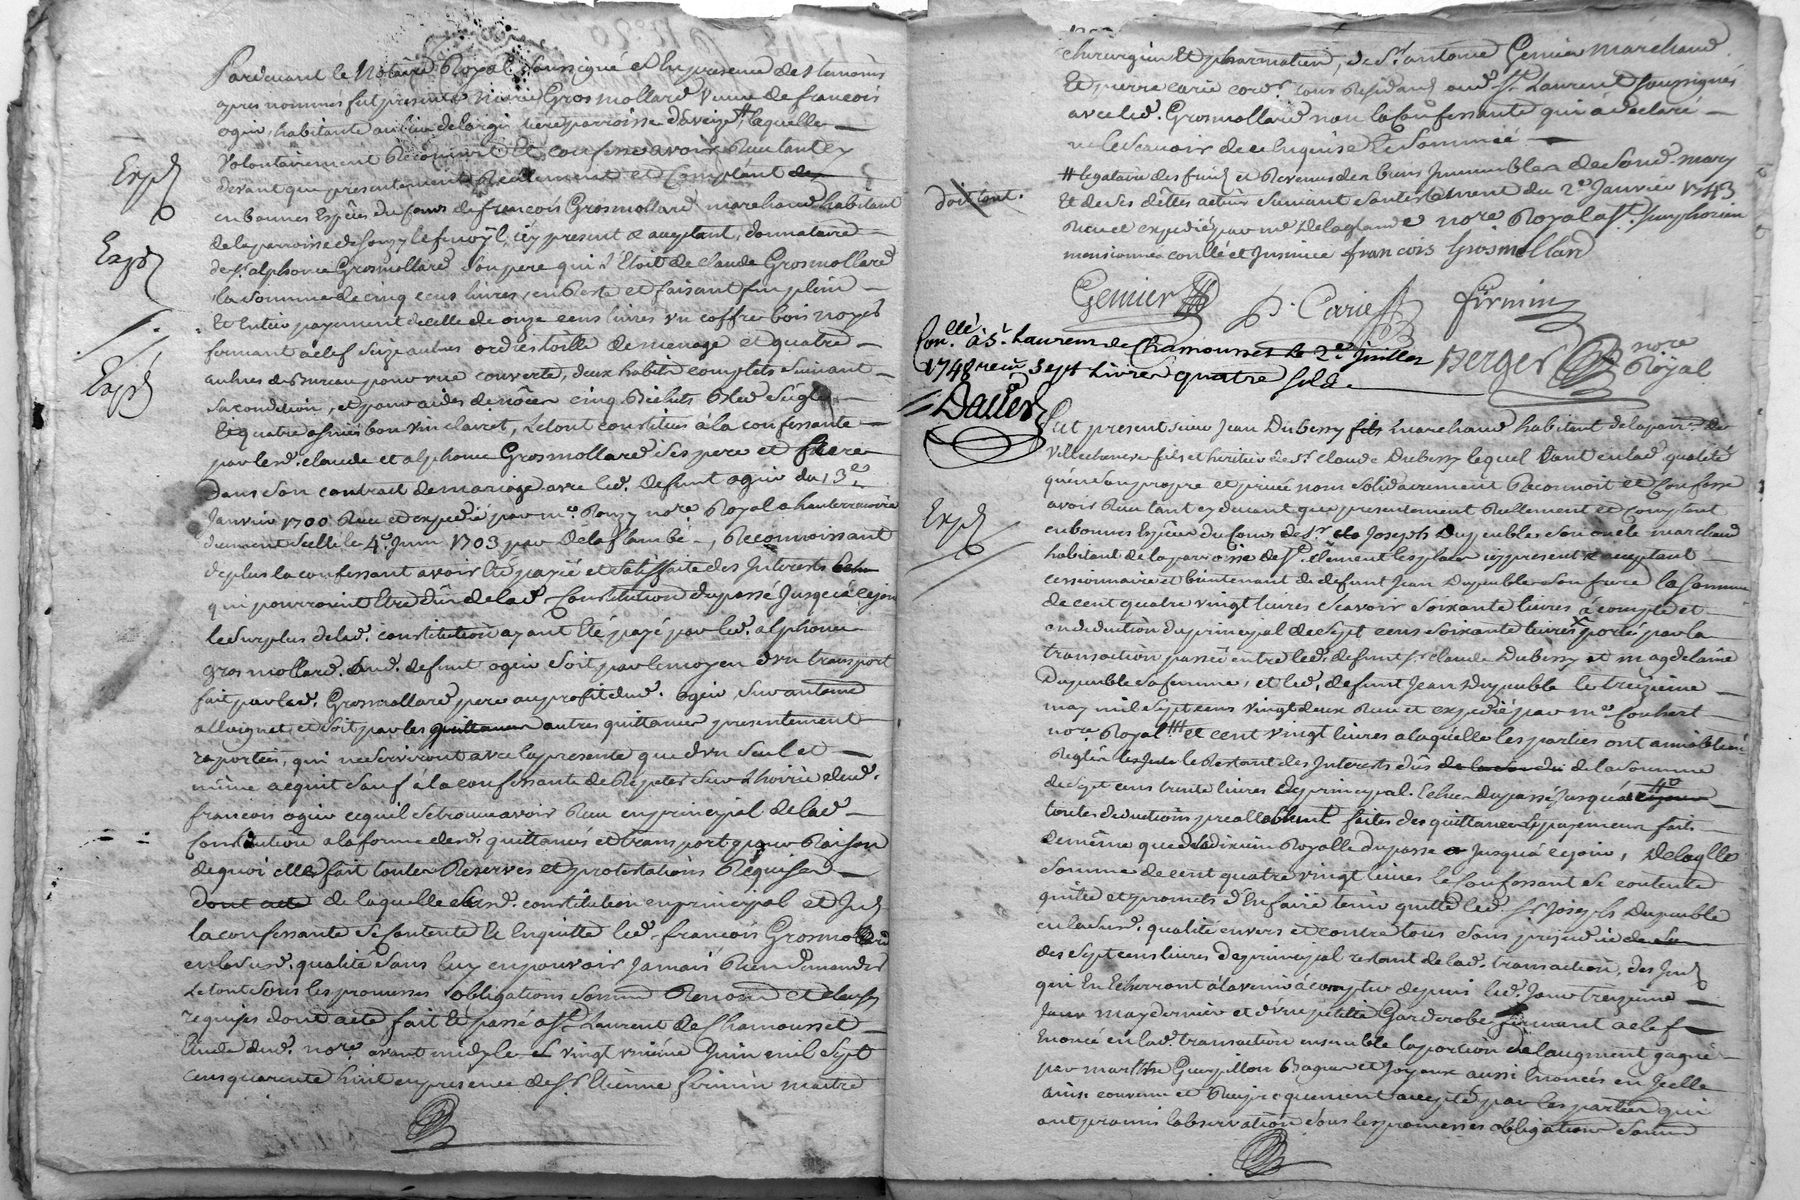 Pardevant le Notaire Royal soussigné et En presence des temoins
apres nommés fut presente Grosmollard veuve de francois
ogier, habitante au lieu de parroisse d'aveize # laquelle
Volontairement Reconnoit Et confesse avoir Reeu tant cy
devant que presentement Reellement et Comptant des
Expd
en bonnes Espèces du cours de francois Grosmollard marchand habitant
de la parroisse de icy present & aceptant, donnataire
Expd
de Sr. alphonce Grosmollard son pere qui L'Etoit de Claude Grosmollard
la somme de cinq cens livres, en Reste et faisant fin plein
Et Entier payement de celle de onze cens livres un coffre bois noyer
fermant a clef seize autres toille de menage et quatre
aulnes de Bureau pour une couverte, deux habits complets suivant
Expd
sa condition, et pour aides de nôces cinq Bichets Bled seigle
Et quatre asnées bon vin clairet, Le tout constitué à la confessante
par led. claude et alphonce Grosmollard ses pere et frere
dans son contrat de mariage avec led. defunt ogier du 13e
Janvier 1700 Reeu et expedié par me. nore. Royal a hauterivoire
duement scellé le 4e. Juin 1703 par Delaflambé, Reconnoissant
de plus la confessante avoir été payée et satisfaite des Interests
qui pourroient Etre dus de lad. Constitution du passé Jusqu'à ce jour
le surplus de lad. constitution ayant été payé par led. alphonce
grosmollard aud. defunt ogier soit par le moyen d'un transport
fait par led. Grosmollard pere au profit dud. ogier sur antoine
et soit par les quittances autres quittances presentement
raportées, qui ne serviront avec la presente que d'un seul et
même acquit sauf à la confessante de Repeter sur L'hoirie dud.
francois ogier ce qu'il se trouve avoir Reeu en principal de lad.
Constitution a la forme desd. quittances et transport pour Raison
de quoi elle fait toutes Reserves et protestations Requises
dont acte de laquelle susd. constitution en principal et
la confessante se contente Et En quitte led. francois Grosmollard
en lad. qualité sans luy en pouvoir Jamais Rien demander
Le tout sous les promesses obligations soumission Renonciation et clauses
requises dont acte fait Et passé a St. Laurent de Chamousset
Etude dud. nore. avant midy le vingt unième Juin mil sept
cens quarente huit en presence de Sr. Etienne firmin maitre
chirurgien Et pharmatien, de Sr. antoine Genier marchand
Et pierre carie cordr. tous Residans aud. St. Laurent soussignés
avec led. Grosmollard non la confessante qui a declaré
ne le scavoir de ce Enquise Et sommée
# legataire des fruits et Revenus des biens Immeubles de sond. mary
dont cont.
Et de ses dettes actives suivant son testament du 2e Janvier 1743
Reeu et expedié par me Delaglande nore Royal a St. Simphorien
mentionné controllé et Insinué francois Grosmollard
Genier P. Carie firmin
Conllé. à St. Laurent de Chamousset le 2e Juillet
1748 reeu sept Livres quatre sols.
Berger nore Royal
Dalier
Fut present sieur Jean Dubessy fils marchand habitant de la parr. de
Villechenève fils et heritier de Sr. claude Dubessy lequel tant en lad. qualité
qu'en son propre et privé nom solidairement Reconnoit et Confesse
avoir Reeu tant cy devant que presentement Reellement et comptant
Expd
en bonnes Espèces du cours de Sr. Joseph Dupeuble son oncle marchand
habitant de la parroisse de St. Clement les places icy present & aceptant
cessionnaire et bientenant de defunt Jean Dupeuble son frere la somme
de cent quatre vingt livres scavoir soixante livres à compte et
en deduction du principal de sept cens soixante livres porté par la
transaction passée entre led. defunt Sr. claude Dubessy et magdelaine
Dupeuble sa femme, et led. defunt Jean Dupeuble le treizieme
may mil sept cens vingt deux Reeu et expedié par me Coubert
nore Royal et cent vingt livres a laquelle les parties ont amiablement
Reglé le Restant des Interests dûs de la somme
de sept cens trente livres de principal Echus du passé Jusqu'à
toutes deductions prealablement faites des quittances & payemens faits
de même que du dixieme Royalle du passé Jusqu'à ce jour, De laqlle
somme de cent quatre vingt livres le confessant se contente
quitte et promets d'En faire tenir quitte led. Sr. Joseph Dupeuble
en lad. qualité envers et contre tous sans prejudice
des sept cens livres de principal restant de lad. transaction, des
qui En Echerront à l'avenir à compter depuis led. Jour treizieme
Jour may dernier et d'une petite Garderobe fermant a clef
Enoncé en lad. transaction ensemble la portion de l'augment gagné
par marthe Guerpillon Bagues et Joyaux aussi Enoncés en Icelle
ainsi convenu et Reciproquement accepté par les parties qui
ont promis l'observation sous les promesses obligation soumis